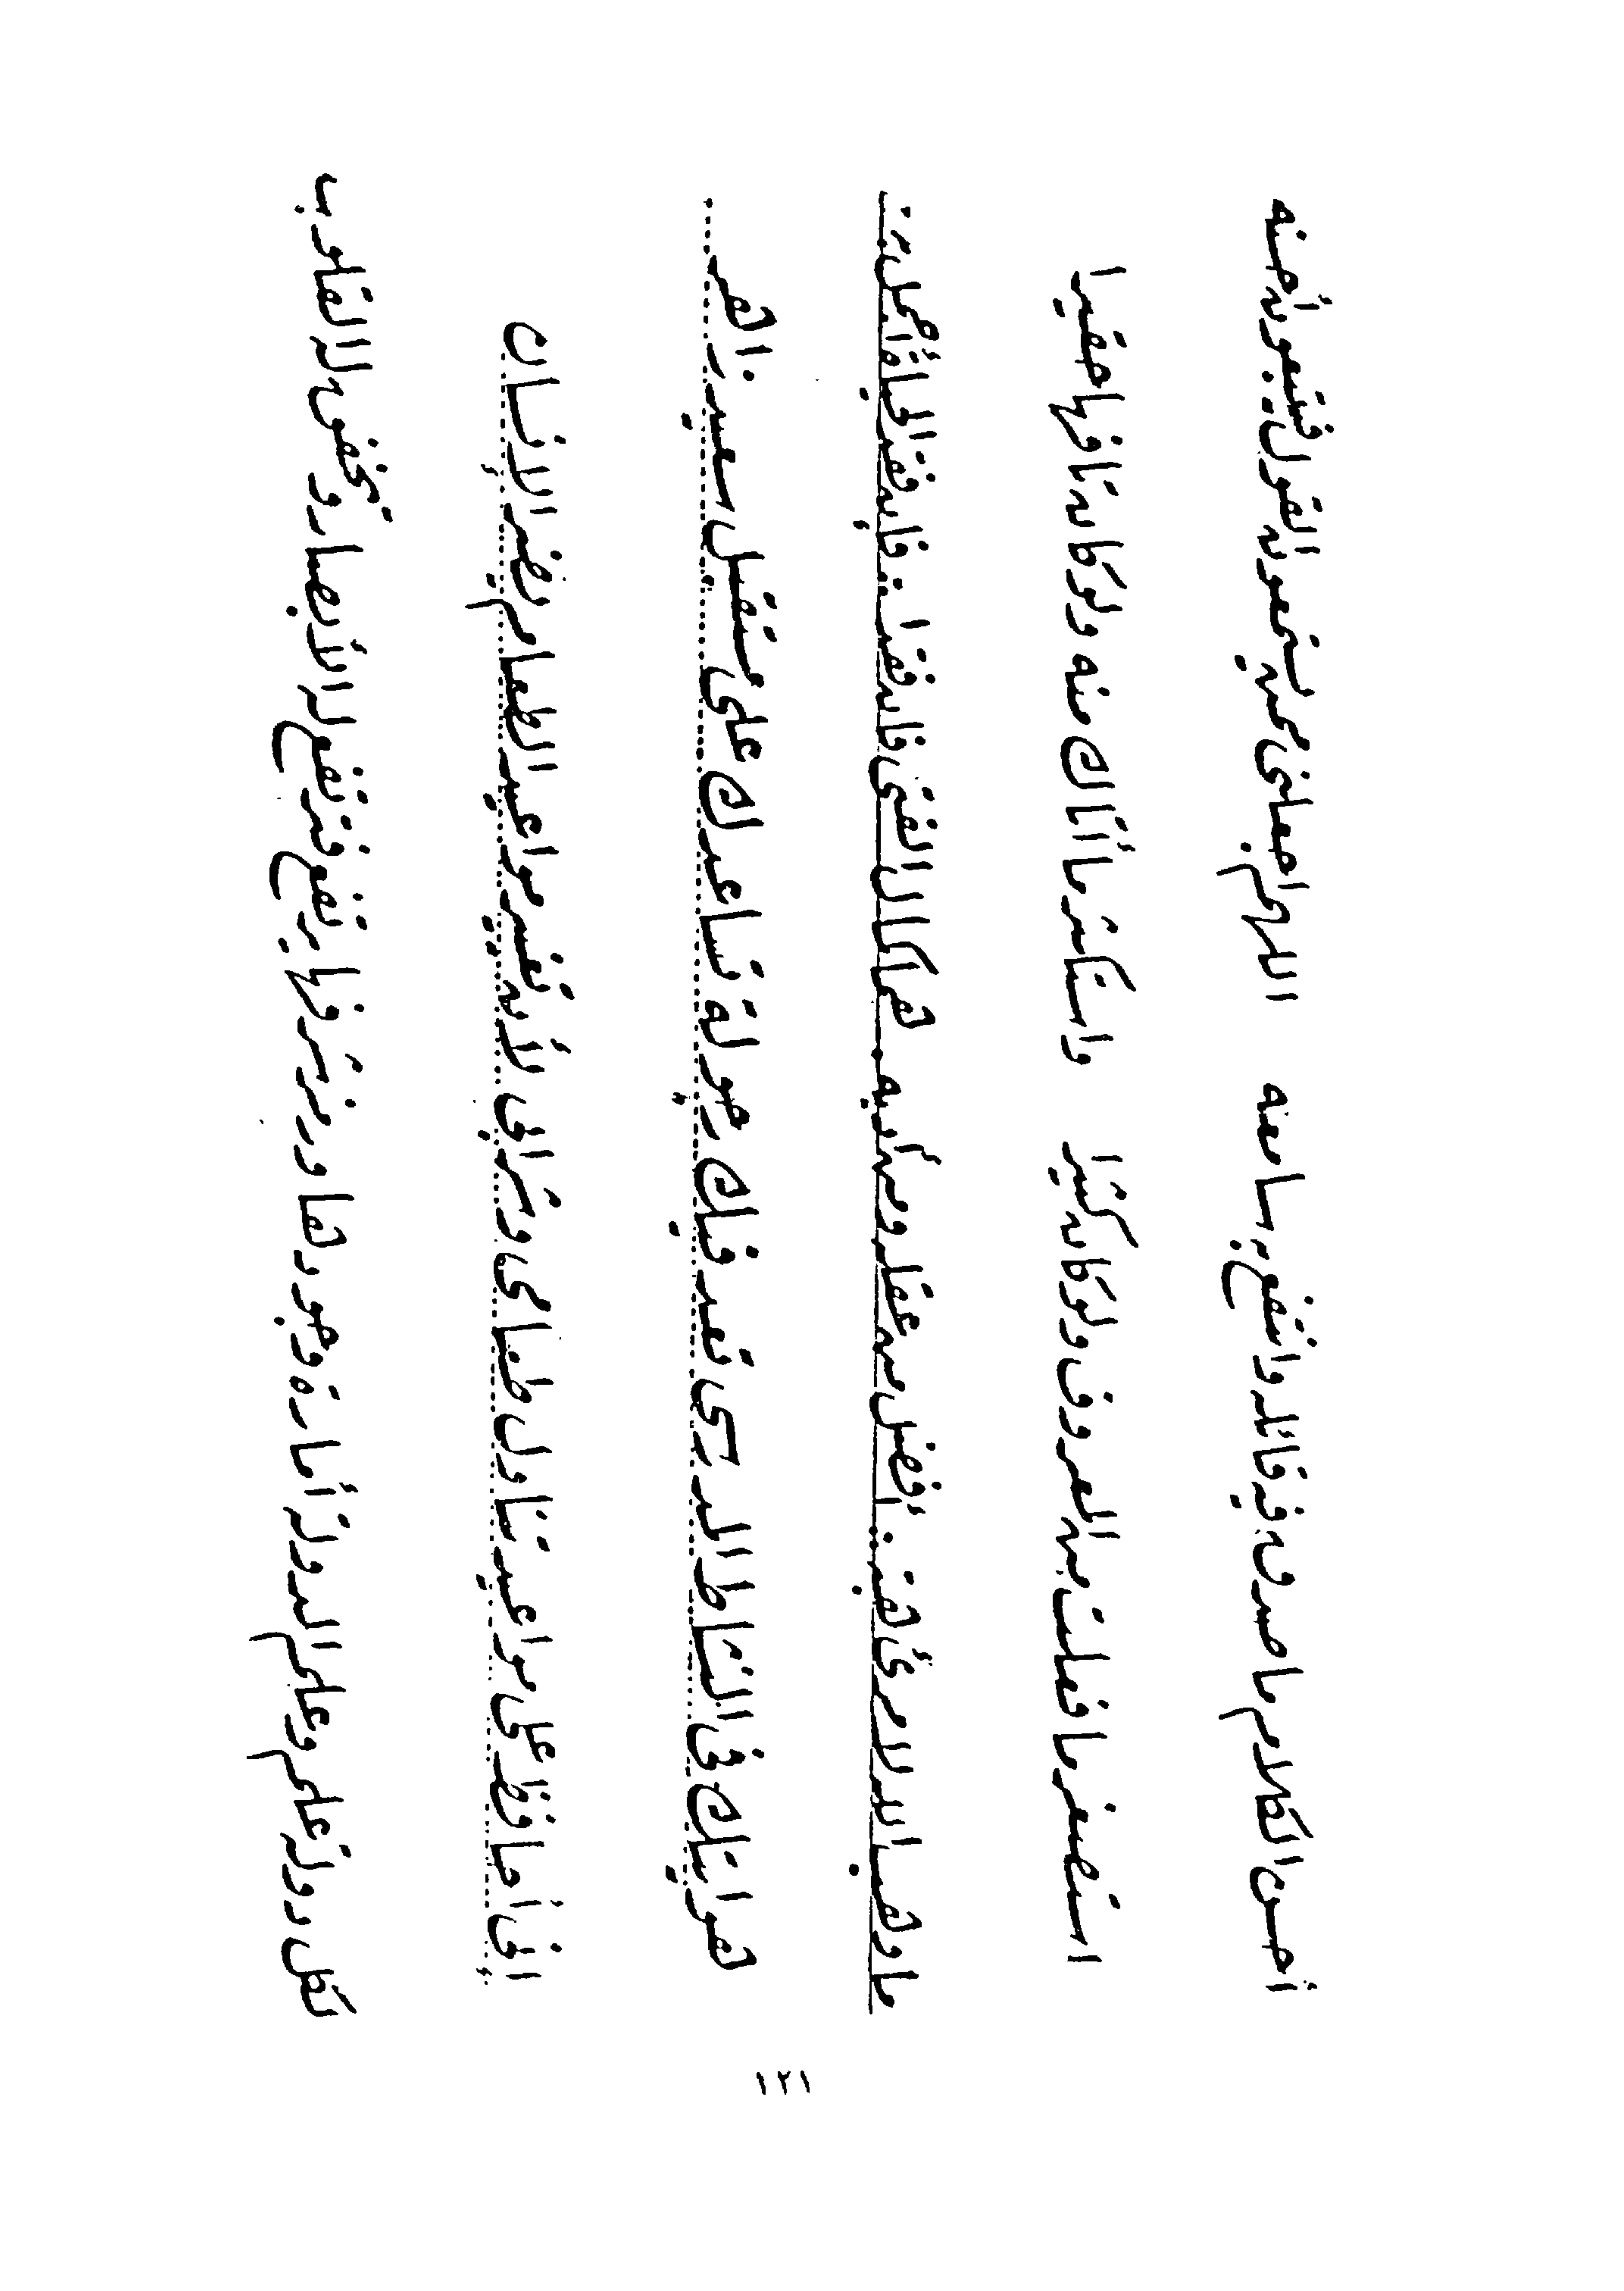 أحسن الكلام ما صدق فيه قائله وانتفع به سامعه اللهم اجعلني ممن يستمعون القول فيتبعون أحسنه
استصغر ما فعلت من المعروف ولو كان كثيرا واستكثر ما أتاك منه ولو كان تافها حقيرا
ما وهب الله لامرئ هبة . أفضل من عقله ومن أدبه . هما كمال الفتى فإن فقدا . فإن فقد الحياة أجمل به
هوايتك في النشاط المدرسي تعد فيك رجولة تساعدك على مستقبل سعيد زاهر...
إني أحافظ على مواعيد تناول طعامي وشرابي لأن تغيير مواعيد الطعام يضر الإنسان
لكل دولة علم وعلم الدولة أمارة وجودها ورمز شرفها يرتفع فترتفع له الأبصار وتخفق له القلوب
١٢١